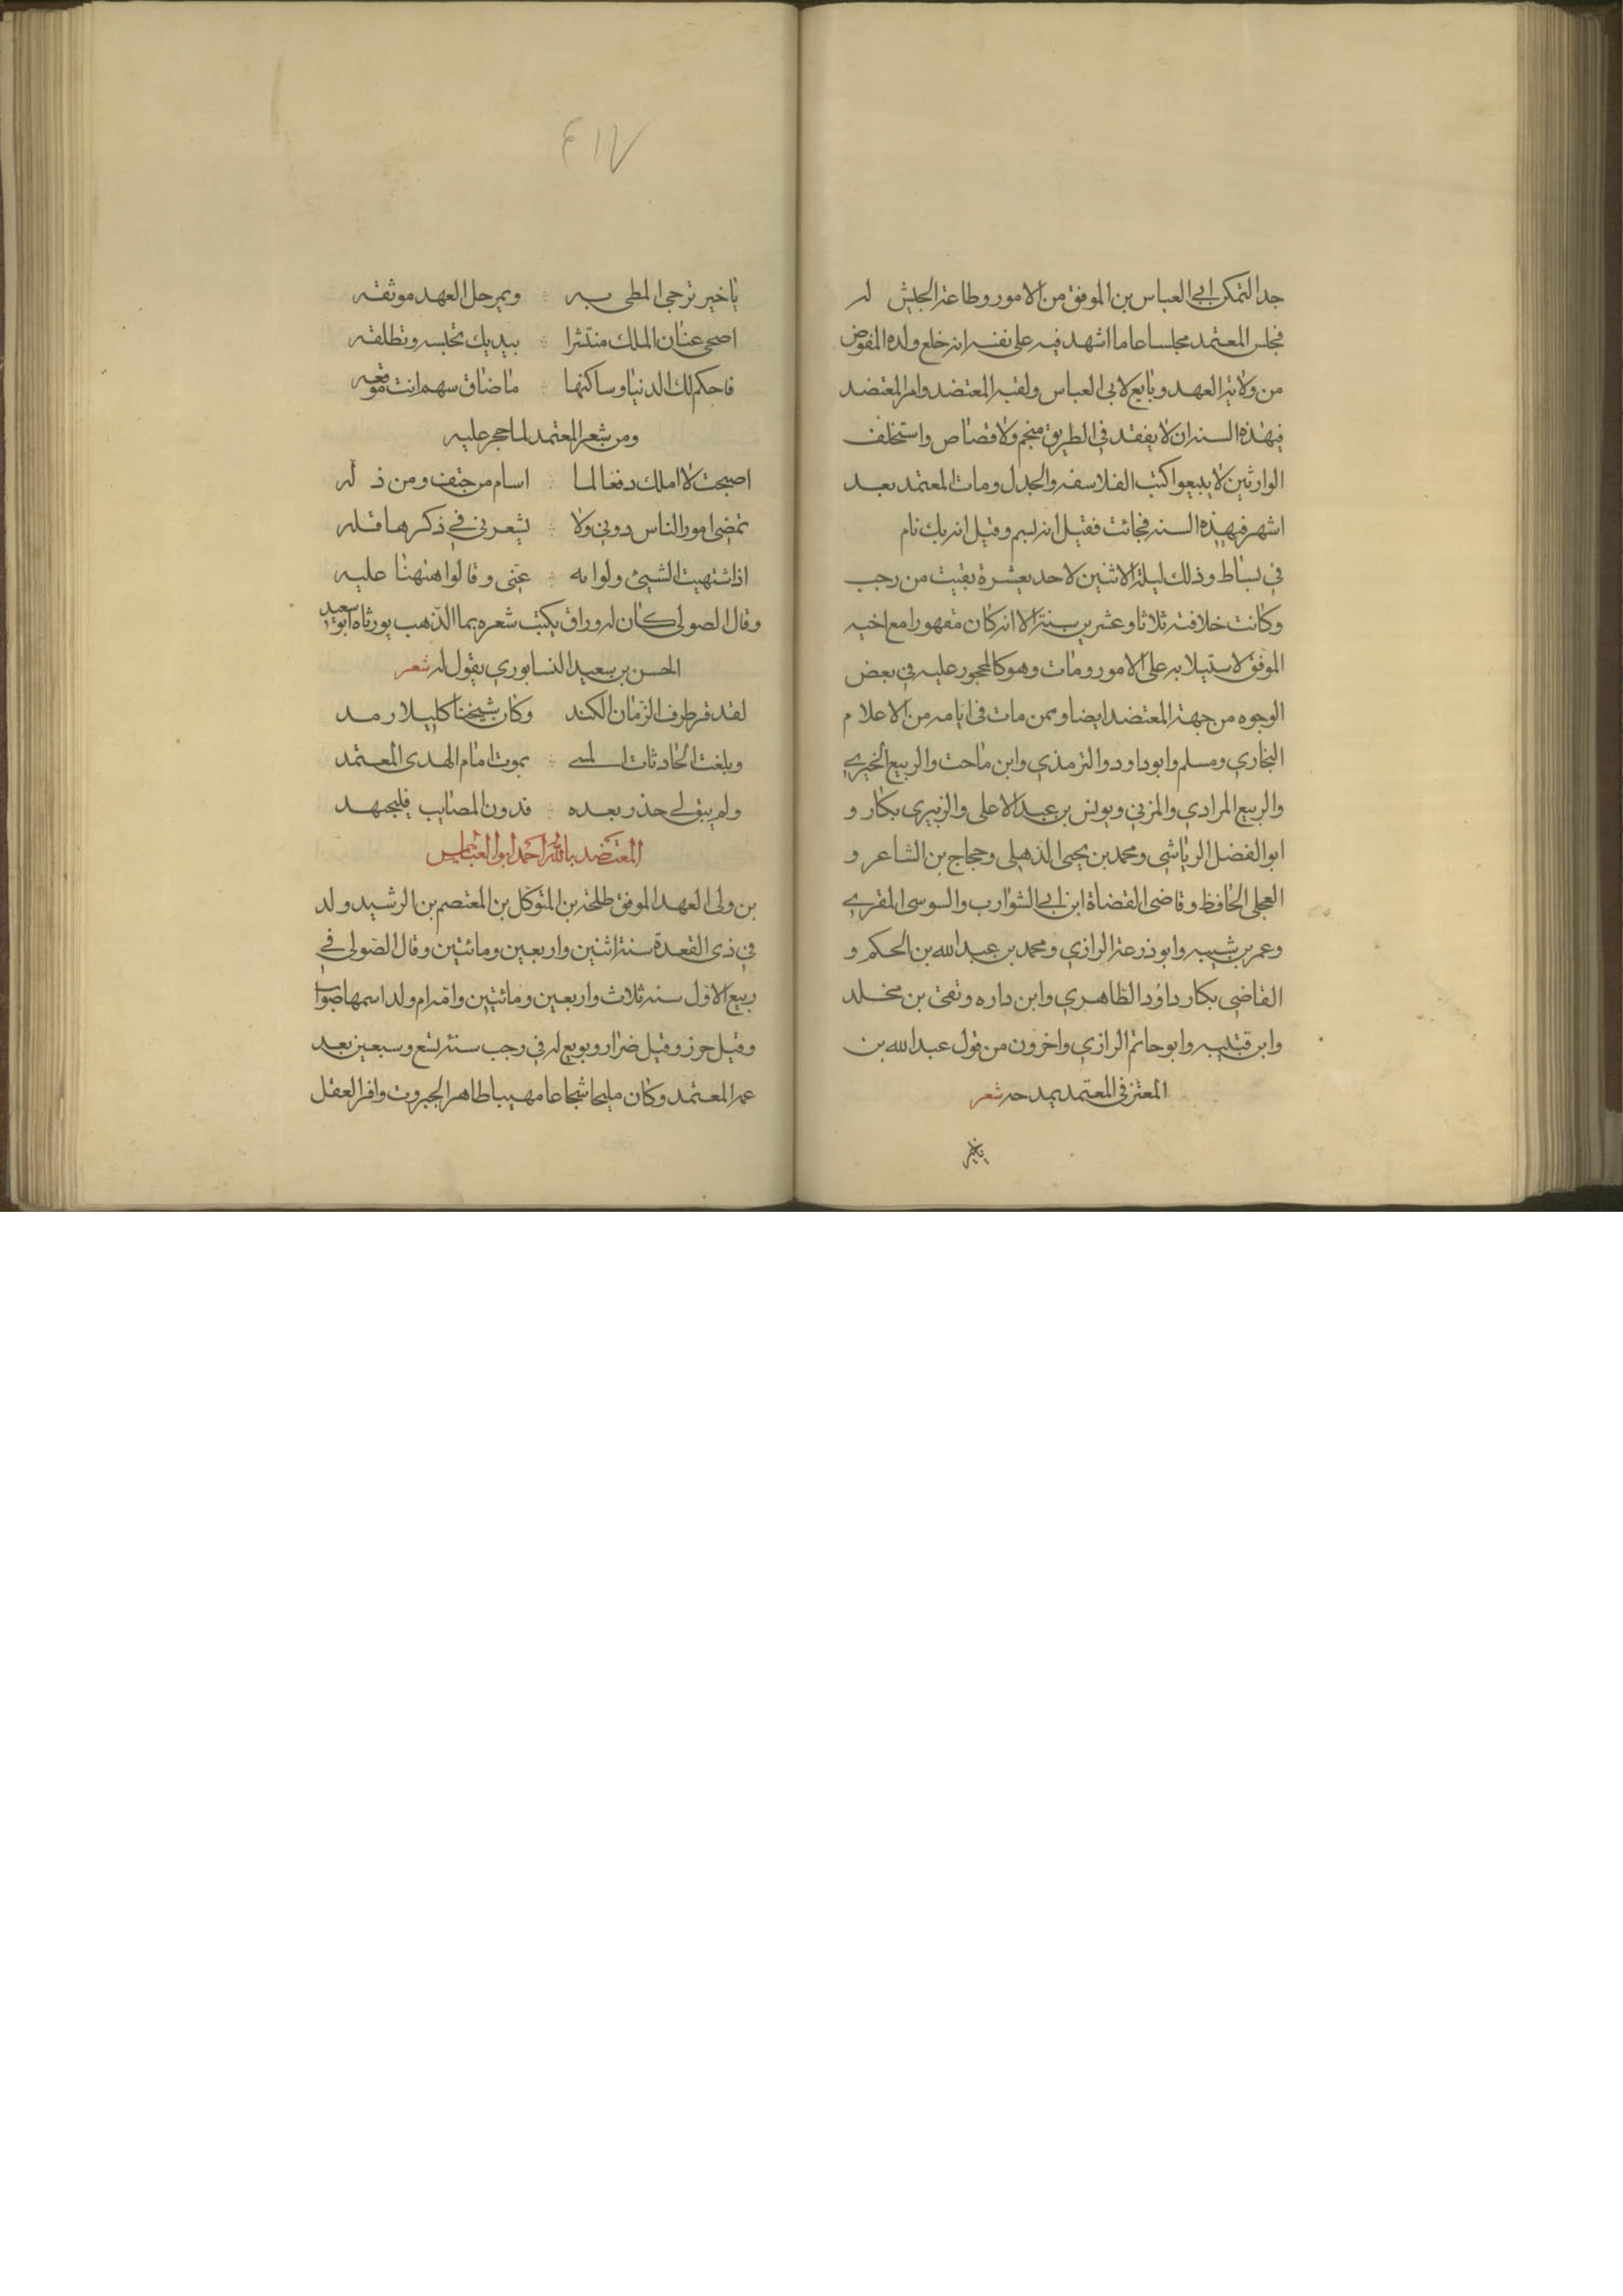 جدا لتمكن ابي العباس بن الموفق من الامور وطاعة الجيش له
فجلس المعتمد مجلسا عاما اشهد فيه على نفسه انه خلع ولده المفوض
من ولاية العهد وبايع لابي العباس ولقبه المعتضد وامر المعتضد
في هذه السنة ان لا يقعد في الطريق منجم ولا قصاص واستحلف
الوارثين لا يبيعوا كتب الفلاسفه والجدل ومات المعتمد بعد
اشهر في هذه السنه فجائت فقيل انه لسم وقيل انه بك نام
في بساط وذلك ليلة الاثنين لاحد يعشرة بقيت من رجب
وكانت خلافته ثلاثا وعشرين سنة الا انه كان مقهورا مع اخيه
الموفق لاستيلابه على الامور ومات وهو كالمحجور عليه في بعض
الوجوه من جهة المعتضد ايضا وممن مات في ايامه من الاعلام
البخاري ومسلم وابو داود والترمذي وابن ماجت والربيع الخيري
والربيع المرادي والمزني ويونس بن عبد الاعلى والزبيرى بكار و
ابو الفضل الرياشي ومحمد بن يحيى الذهيلى وحجاج بن الشاعر و
العجلى الحافظ وقاضى القضاة ابن ابي الشوارب والسوسى المقري
وعمر بن شيبه وابو ذرعة الرازي ومحمد بن عبد الله بن الحكم و
القاضي بكار داود الظاهري وابن داره وتقى بن مخلد
وابن قتيبه وابو حاتم الرازي واخرون من قول عبد الله بن
المعتز في المعتمد يمدحه شعر
ياخير
٤١٧
ياخير تزجى المطى به ويمر حل العهد موثقه
اصحى عنان الملك منتشرا بيديك تحبسه وتطلقه
فاحكم لك الدنيا وساكنها ما ضاق سهم انت موقعه
ومن شعر المعتمد لما حجر عليه
اصبحت لا املك دفعا لما اسام من خسف ومن ذ له
تمضى امور الناس دوني ولا يشعرني في ذكرها قله
اذا اشتهيت الشيئ ولوا به عنى وقالوا ههنا عليه
وقال الصولى كان له وراق يكتب شعره بما الذهب ورثاه ابو سعيد
الحسن بن سعيد النسابوري بقول له شعر
لقد قر طرف الزمان الكند وكان شيخنا كليلا رمد
وبلغت الحادثات المسے بموت امام الهدى المعتمد
ولم يبق لي حذر بعده فدون المصايب فليجهد
المعتضد بالله احمد ابو العباس
بن ولى العهد الموفق طلحة بن المتوكل بن المعتصم بن الرشيد ولد
في ذى القعدة سنة اثنين واربعين ومائتين وقال الصولى في
ربيع الاول سنه ثلاث واربعين ومائتين وامه ام ولد اسمها صواب
وقيل حرز وقيل ضرار وبويع له في رجب سنة تسع وسبعين بعد
عمه المعتمد وكان مليحا شجاعا مهيبا طاهر الجبروت وافر العقل